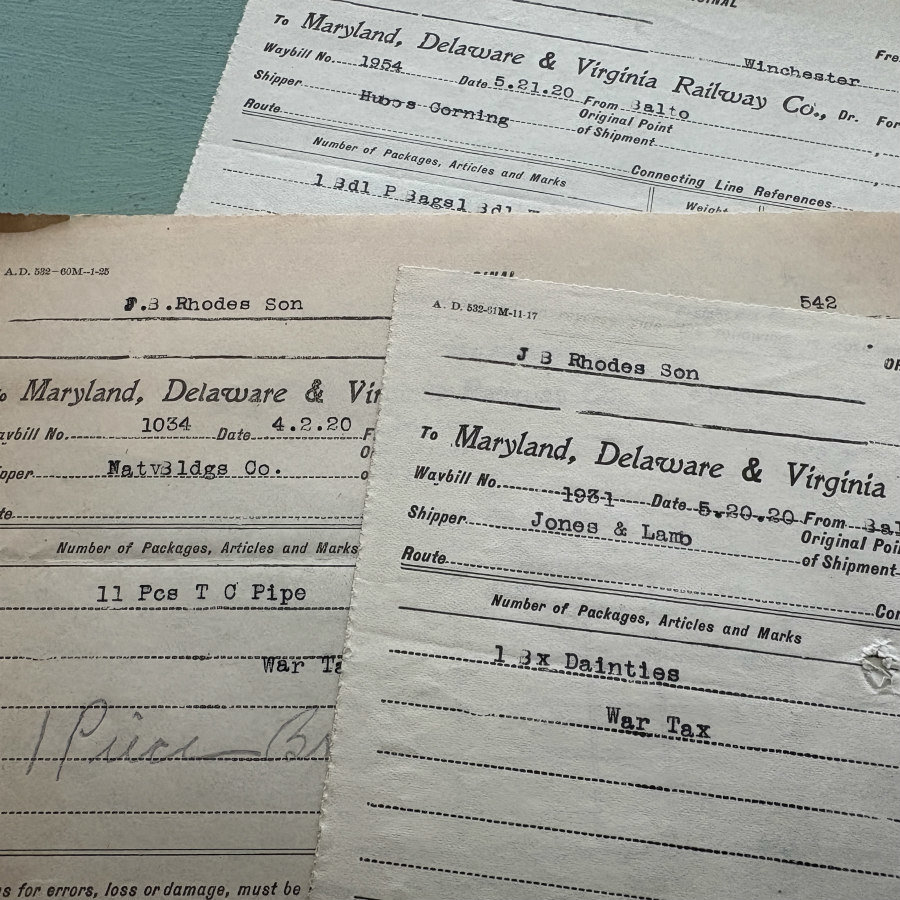 Winchester
To Maryland, Delaware & Virginia Railway Co., Dr. For
Waybill No. 1954 Date 5.21.20 From Balto
Shipper Hubbs Corning Original Point of Shipment
Route
Connecting Line References
Number of Packages, Articles and Marks
Weight
1 Bdl P Bags1 Bdl
A.D. 532-60M--1-25
J.B.Rhodes Son
542
To Maryland, Delaware & Vir
Waybill No. 1034 Date 4.2.20
Natv Bldgs Co.
Number of Packages, Articles and Marks
11 Pcs T C Pipe
War Ta
1 Piece Br
s for errors, loss or damage, must be
A. D. 532-61M-11-17
J B Rhodes Son
To Maryland, Delaware & Virginia
Waybill No. 1931 Date 5.20.20 From Bal
Shipper Jones & Lamb Original Poi
of Shipment
Route
Con
Number of Packages, Articles and Marks
1 Bx Dainties
War Tax